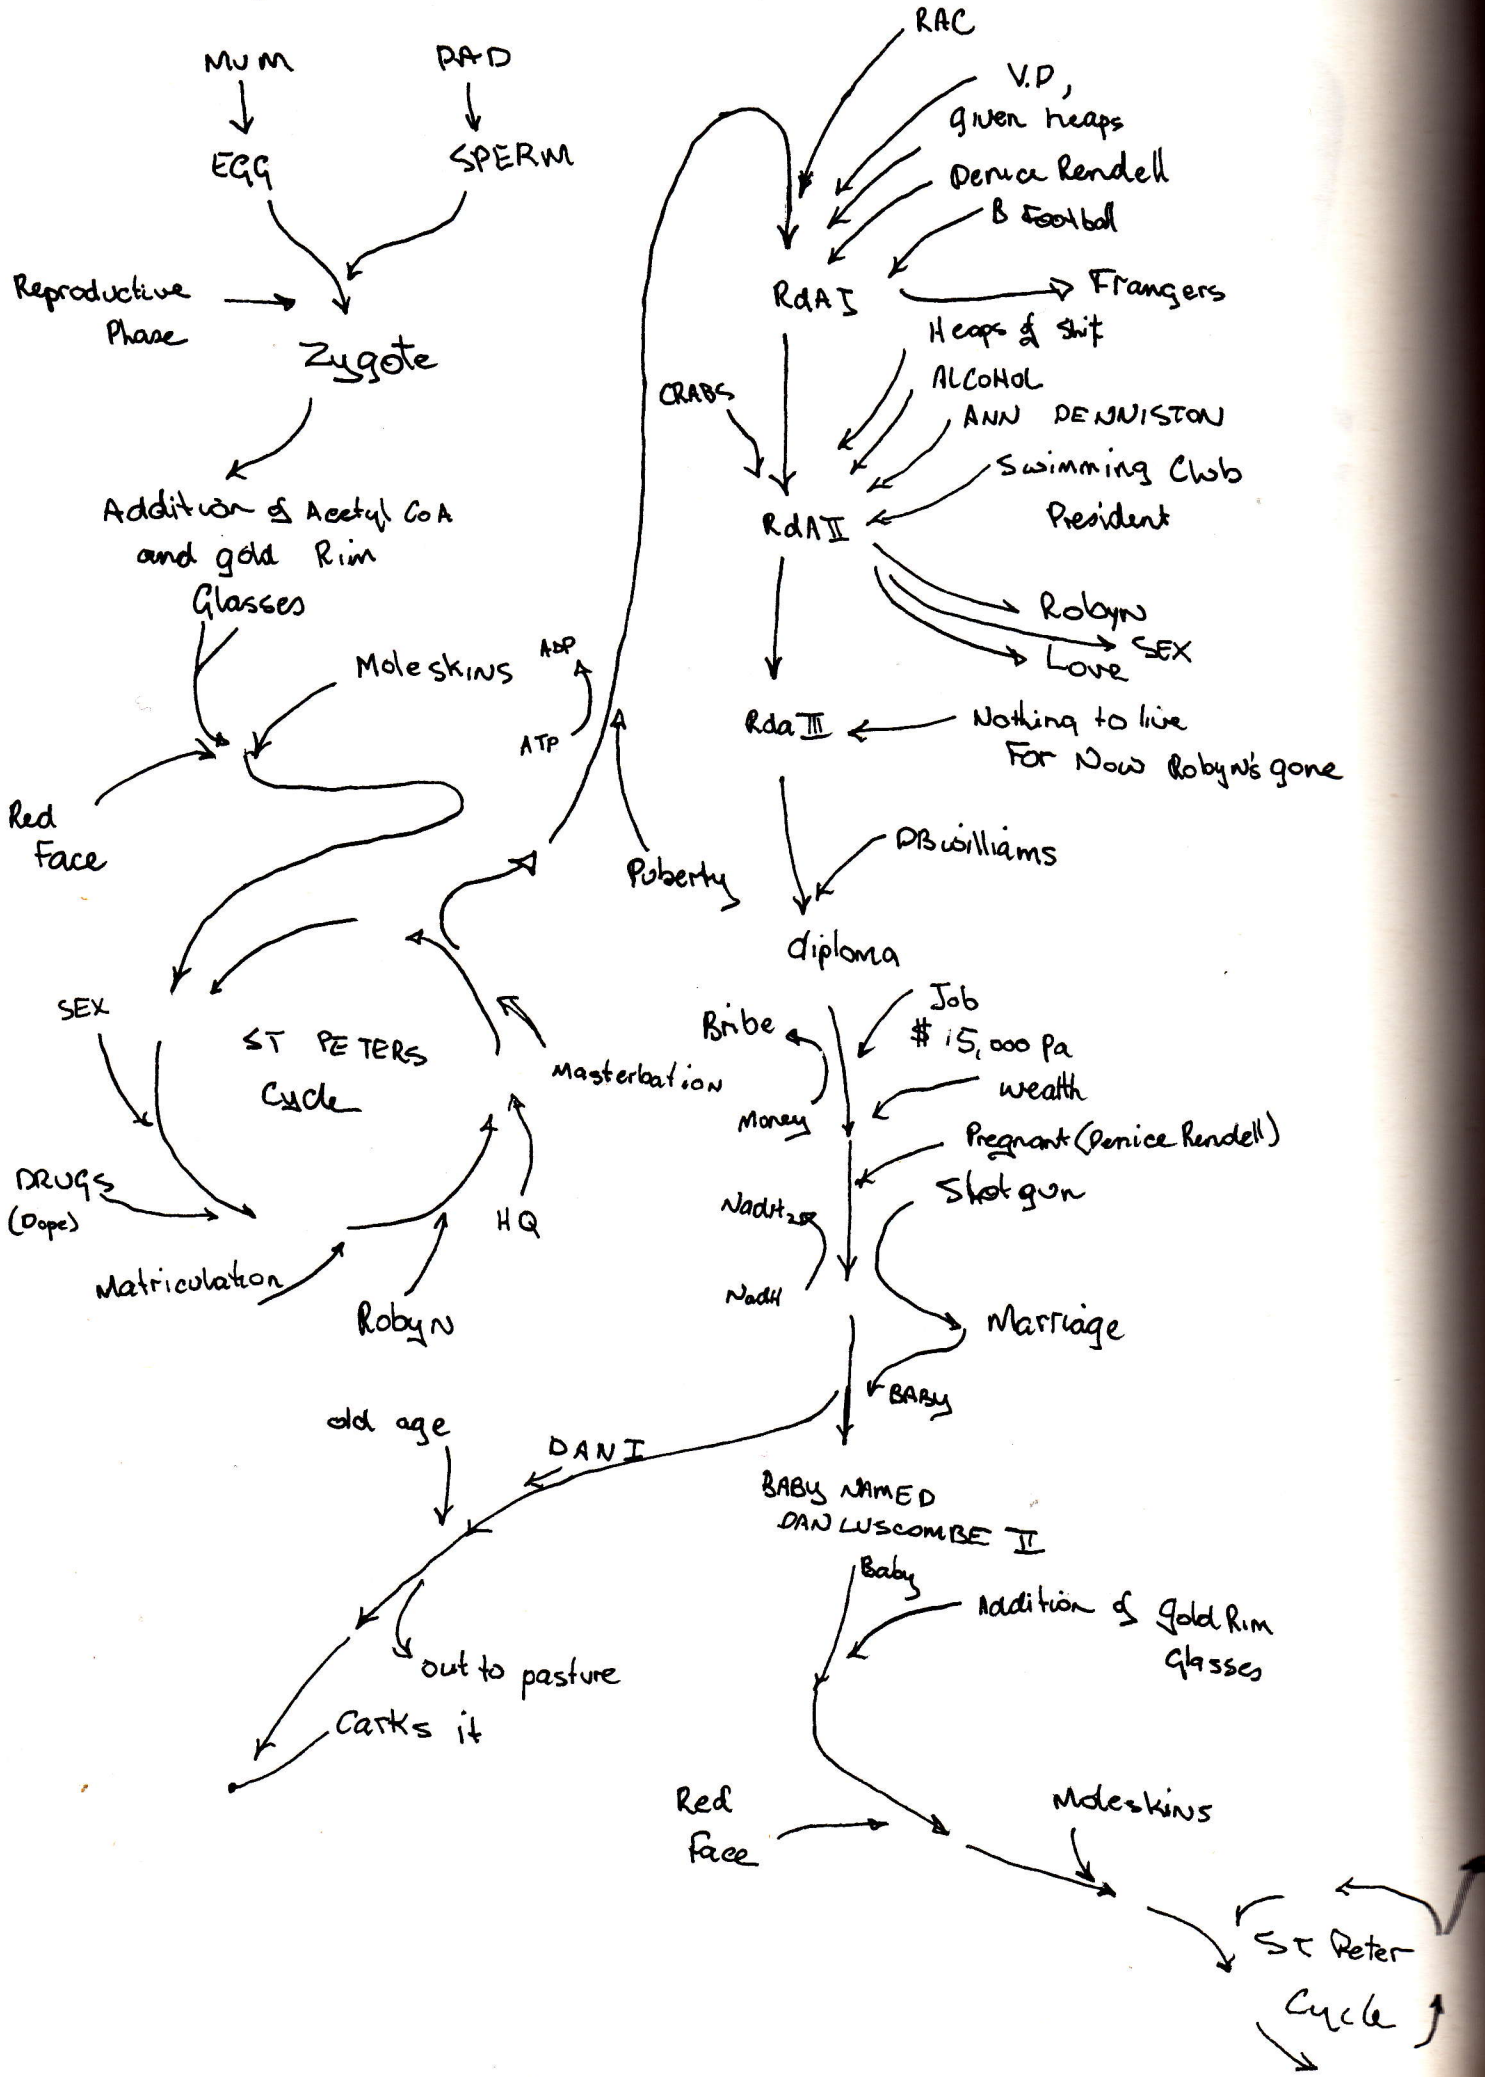 MUM
DAD
EGG
SPERM
Reproductive
Phase
Zygote
Addition of Acetyl CoA
and gold Rim
Glasses
Moleskins
ADP
ATP
Red
Face
Puberty
SEX
ST PETERS
Cycle
Masterbation
DRUGS
(Dope)
HQ
Matriculation
Robyn
RAC
V.D,
given heaps
Denice Rendell
B Football
RdA I
Frangers
Heaps of Shit
CRABS
ALCOHOL
ANN DENNISTON
Swimming Club
President
RdA II
Robyn
SEX
Love
Rda III
Nothing to live
For Now Robyn's gone
DB Williams
diploma
Job
$ 15,000 Pa
Bribe
Wealth
Money
Pregnant (Denice Rendell)
Shotgun
NadH2
NadH
Marriage
BABY
old age
DAN I
BABY NAMED
DAN LUSCOMBE II
Baby
Addition of gold Rim
Glasses
out to pasture
Carks it
Red
Face
Moleskins
ST Peter
Cycle